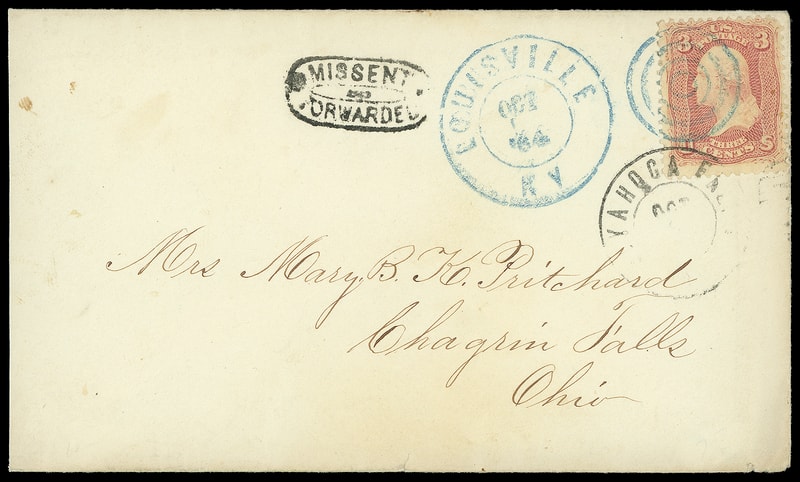 MISSENT
AND
FORWARDED
LOUISVILLE
OCT
64
KY
3 U.S. 3
POSTAGE
THREE
CENTS
YAHOGA FA
OCT
Mrs Mary. B. K. Pritchard
Chagrin Falls
Ohio